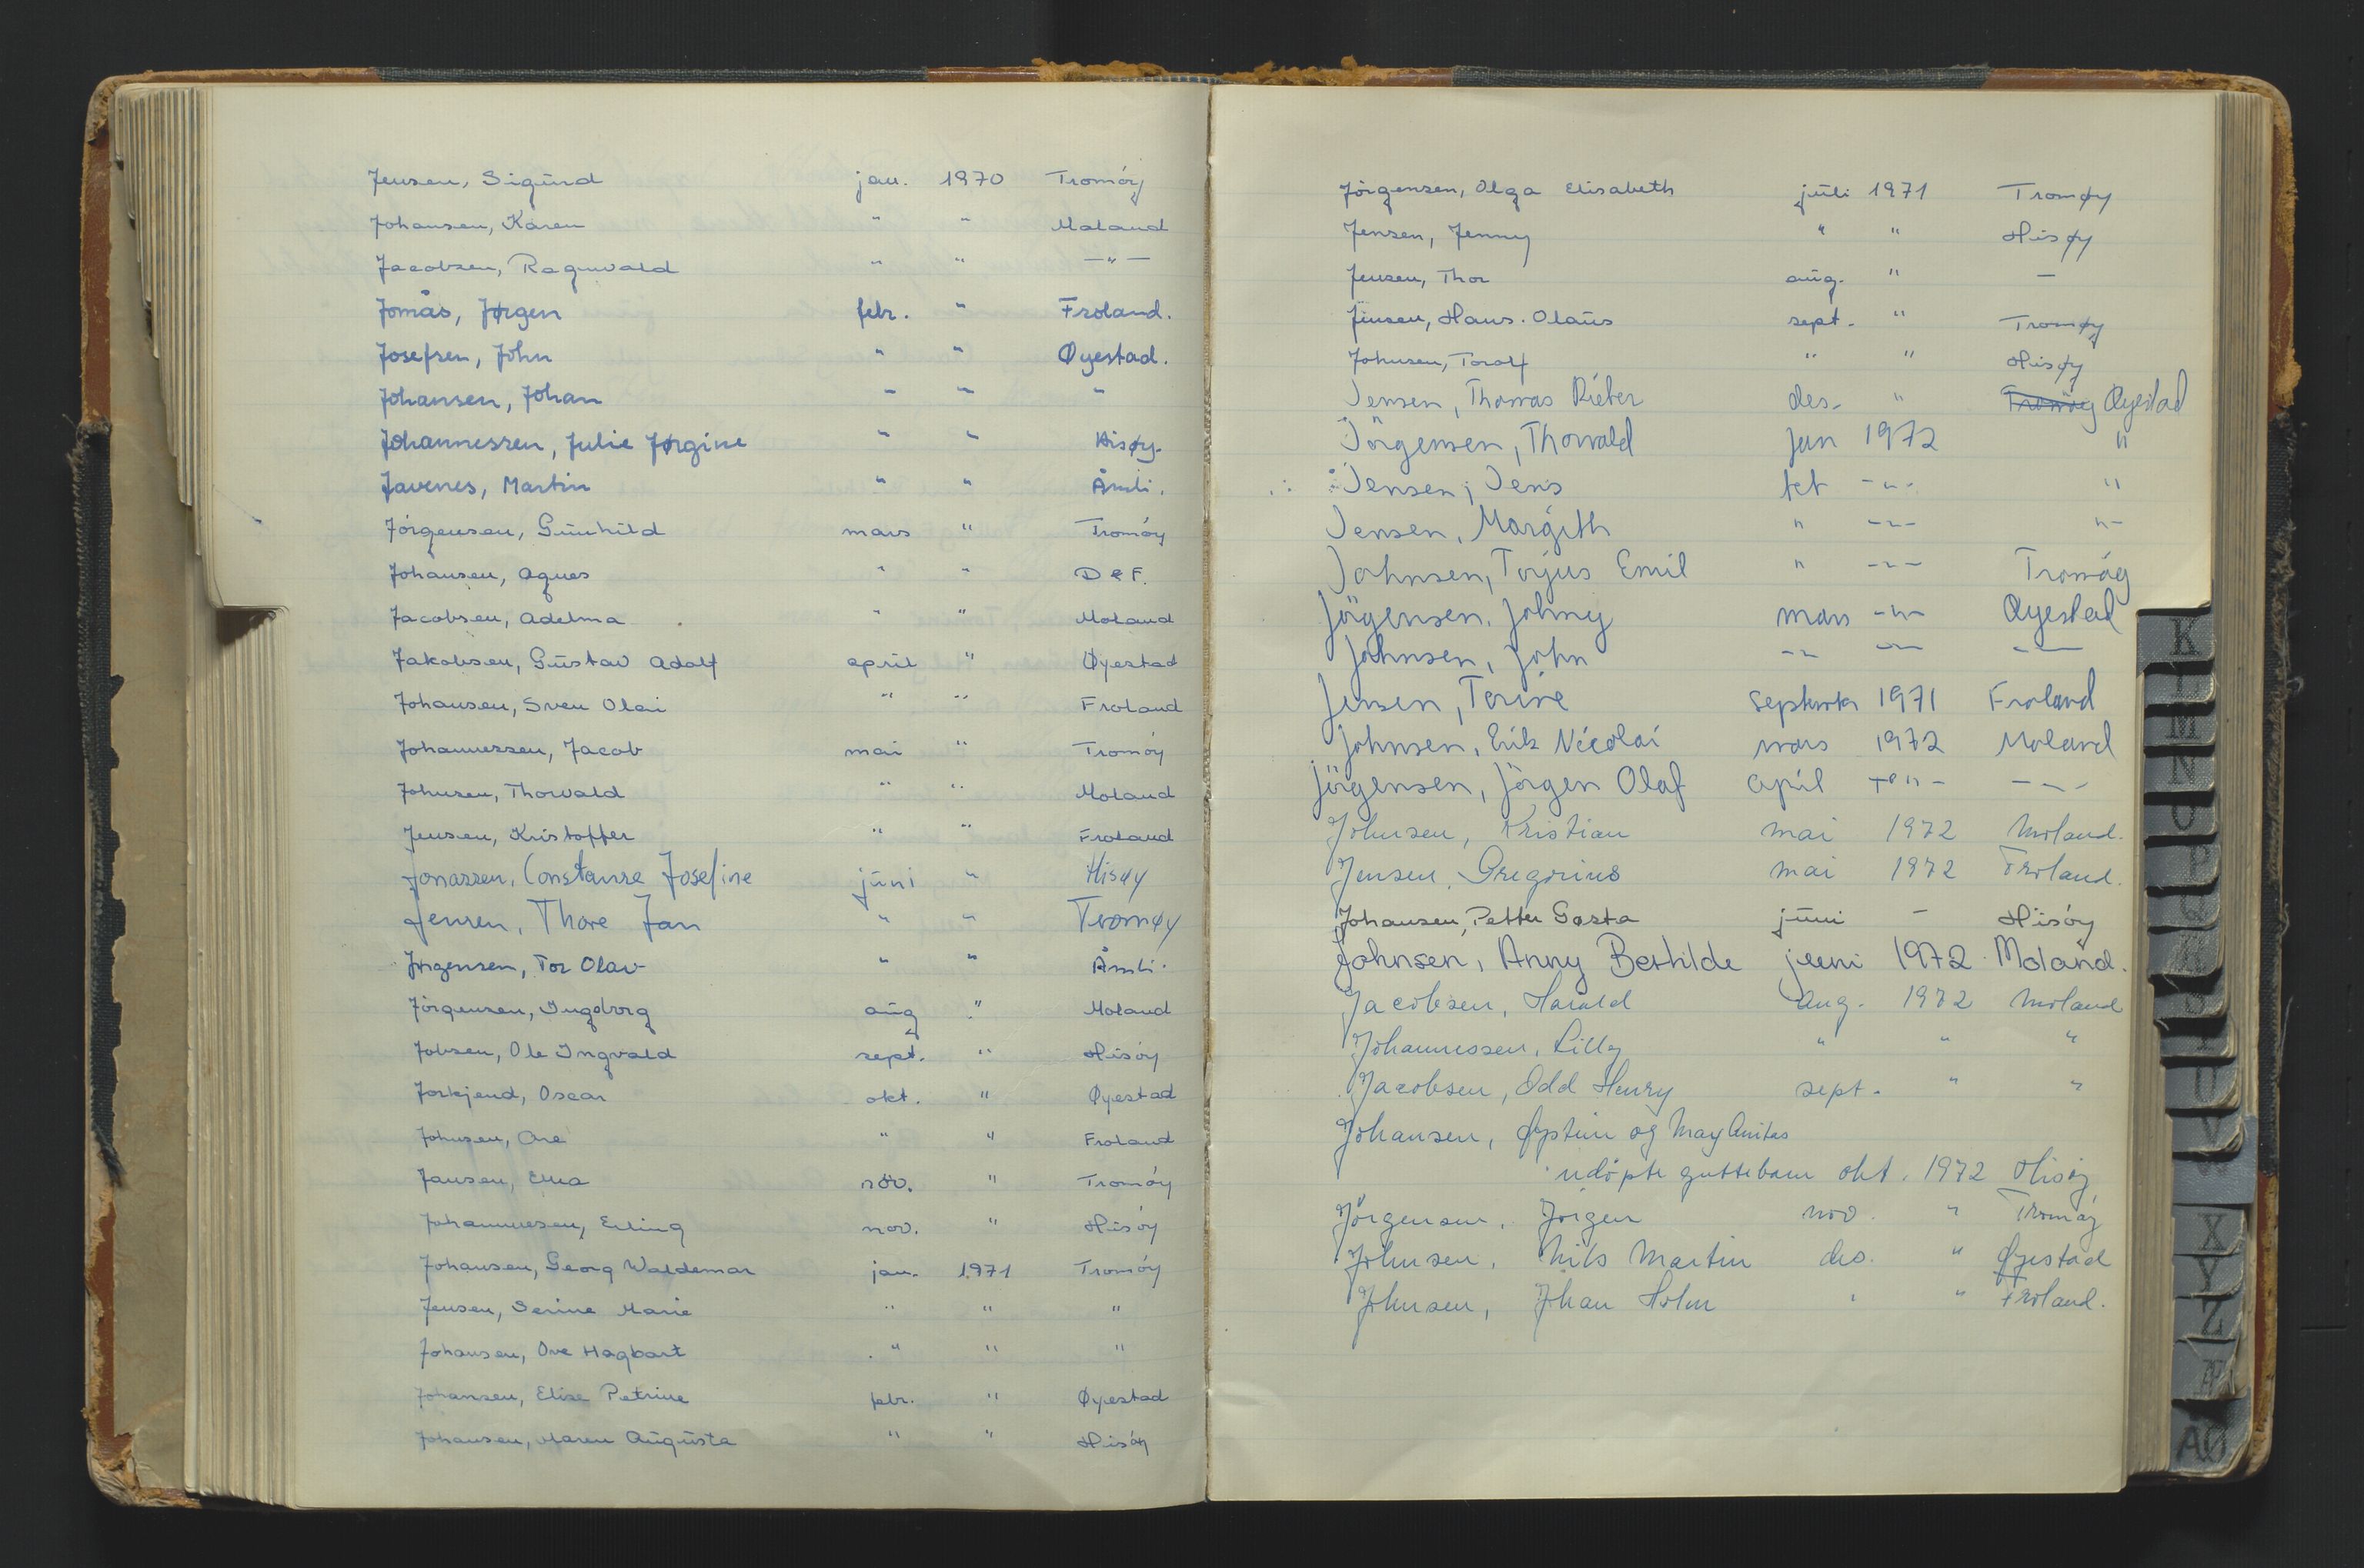 Jensen, Sigurd jan. 1970 Tromöy
Johansen, Karen " " Moland
Jacobsen, Ragnvald " " —"—
Jomås, Jørgen febr. " Froland.
Josefsen, John " " Øyestad.
Johansen, Johan " " "
Johannessen, Julie Jørgine " " Hisøy.
Javenes, Martin " " Åmli.
Jörgensen, Gunhild mars " Tromöy
Johansen, Agnes " " D e F.
Jacobsen, Adelma " " Moland
Jakobsen, Gustav Adolf april " Øyestad
Johansen, Sven Olai " " Froland
Johannessen, Jacob mai " Tromöy
Johnsen, Thorvald " " Moland
Jensen, Kristoffer " " Froland
Jonassen, Constanse Josefine juni " Hisøy
Jensen, Thore Jan " " Tromøy
Jørgensen, Tor Olav " " Åmli.
Jörgensen, Ingeborg aug " Moland
Jobsen, Ole Ingvald sept. " Hisöy
Jorkjend, Oscar okt. " Øyestad
Johnsen, Are " " Froland
Jansen, Elna nov. " Tromöy
Johannesen, Erling nov. " Hisöy
Johansen, Georg Waldemar jan. 1971 Tromöy
Jensen, Serine Marie " " "
Johansen, Ove Hagbart " " "
Johansen, Elise Petrine febr. " Øyestad
Johansen, Maren Augusta " " Hisöy
Jörgensen, Olga Elisabeth juli 1971 Tromøy
Jensen, Jenny " " Hisøy
Jensen, Thor aug. " —
Jensen, Hans. Olaus sept. " Tromøy
Johnsen, Torolf " " Hisøy
Jensen, Thomas Rieber des. " Tromöy Øyestad
Jörgensen, Thorvald jan 1972 "
Jensen, Jens febr -"- "
Jensen, Margith " -"- "-
Johnsen, Torjus Emil " -"- Tromöy
Jörgensen, Johny mars -"- Øyestad
Johnsen, John -"- -"- -"-
Jensen, Torine September 1971 Froland
Johnsen, Erik Nicolai mars 1972 Moland
Jörgensen, Jörgen Olaf april -"- -"-
Johnsen, Kristian mai 1972 Moland.
Jensen, Gregorius mai 1972 Froland.
Johansen, Petter Gøsta juni — Hisöy
Johnsen, Anny Berthilde juni 1972 Moland.
Jacobsen, Harald aug. 1972 Moland
Johannessen, Lilly " " "
Jacobsen, Odd Henry sept. " "
Johansen, Øystein og May Anitas
udöpte guttebarn okt. 1972 Hisöy
Jörgensen, Jörgen nov. " Tromöy
Johnsen, Nils Martin des. " Øyestad
Johnsen, Johan Holm " " Froland.
K
L
M
N
O
P
S
U
V
X
Y
Z
Æ
AØ